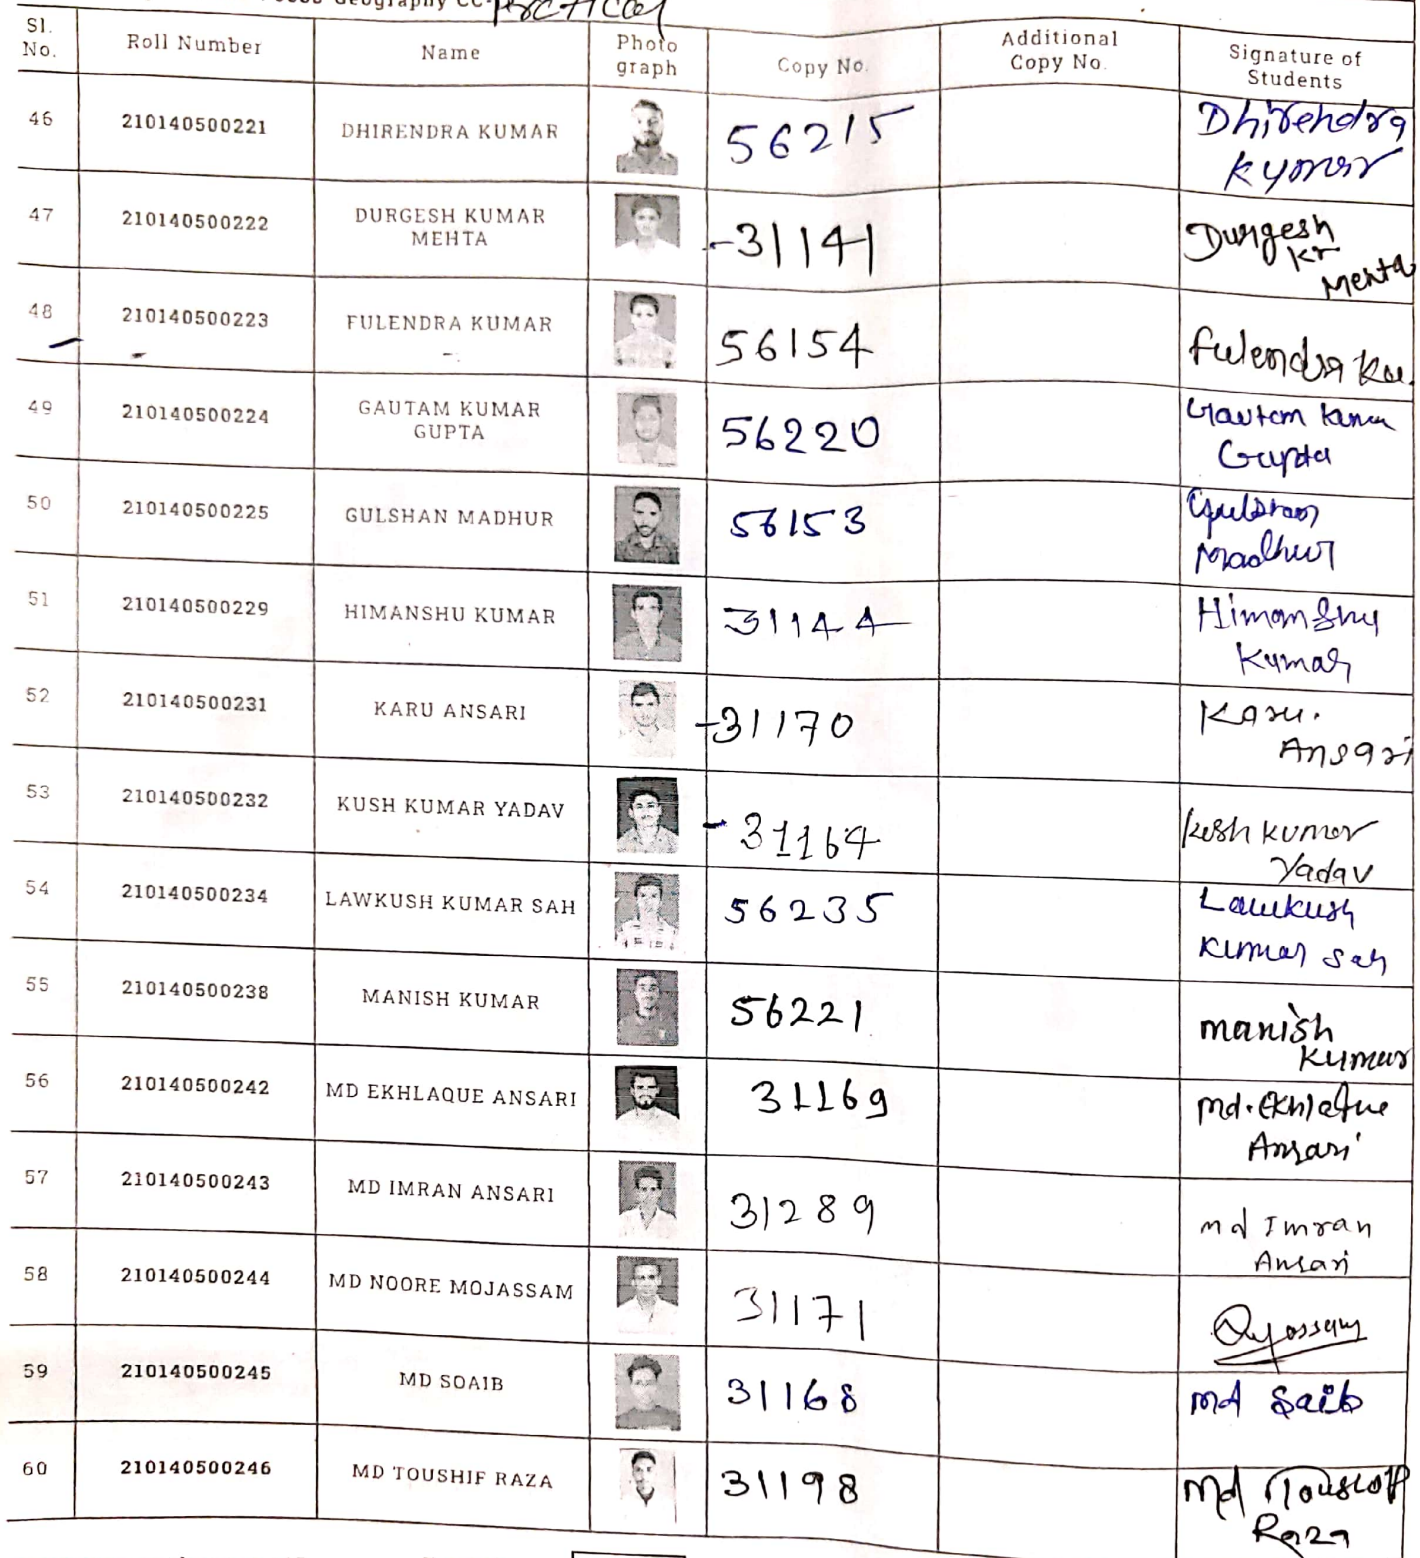 Geography CC- Practical
Sl. No. Roll Number Name Photo graph Copy No. Additional Copy No. Signature of Students
46 210140500221 DHIRENDRA KUMAR 56215 Dhirendra Kumar
47 210140500222 DURGESH KUMAR MEHTA -31141 Durgesh Kr Mehta
48 210140500223 FULENDRA KUMAR 56154 Fulendra Ku.
49 210140500224 GAUTAM KUMAR GUPTA 56220 Gautam Kumar Gupta
50 210140500225 GULSHAN MADHUR 56153 Gulshan Madhur
51 210140500229 HIMANSHU KUMAR 31144 Himanshu Kumar
52 210140500231 KARU ANSARI -31170 Karu. Ansari
53 210140500232 KUSH KUMAR YADAV - 31164 Kush Kumar Yadav
54 210140500234 LAWKUSH KUMAR SAH 56235 Lawkush Kumar Sah
55 210140500238 MANISH KUMAR 56221 manish Kumar
56 210140500242 MD EKHLAQUE ANSARI 31169 Md. Ekhlaque Ansari
57 210140500243 MD IMRAN ANSARI 31289 md Imran Ansari
58 210140500244 MD NOORE MOJASSAM 31171
59 210140500245 MD SOAIB 31168 Md Saib
60 210140500246 MD TOUSHIF RAZA 31198 Md Toushif Raza